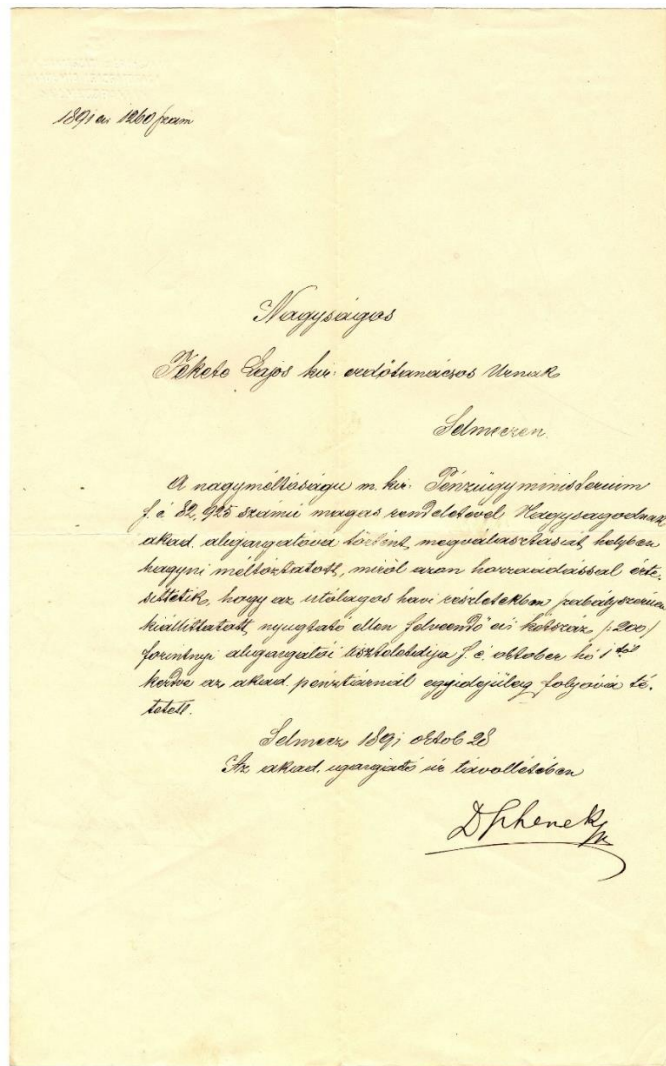 1891 évi 1260 szám
Nagyságos
Fekete Lajos kir. erdőtanácsos Urnak
Selmeczen.
A nagyméltóságu m. kir. Pénzügyministerium
f. é 82,925 számú magas rendeletével Nagyságodnak
akad. aligazgatóvá történt megválasztását helyben
hagyni méltóztatott, miről azon hozzáadással érte-
sittetik, hogy az utólagos havi részletekben szabályszerűen
kiállittatott nyugtató ellen felveendő évi kétszáz /:200/
forintnyi aligazgatói tiszteletdija f. é. oktober hó 1től
kezdve az akad. pénztárnál egyidejüleg folyóvá té-
tetett.
Selmecz 1891 oktob 28
Az akad. igazgató úr távollétében
D Schenek